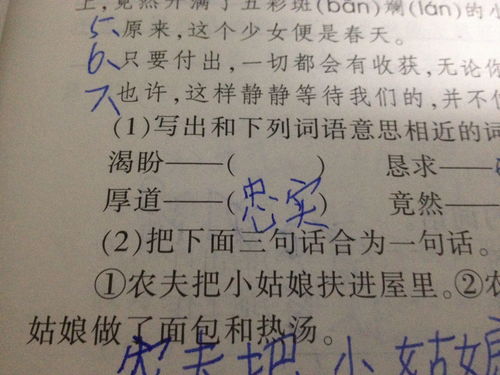 上,竟然开满了五彩斑(bān)斓(lán)的小
5、原来,这个少女便是春天。
6、只要付出,一切都会有收获,无论你
7、也许,这样静静等待我们的,并不
(1)写出和下列词语意思相近的词
渴盼——( ) 恳求——
厚道——(忠实) 竟然——
(2)把下面三句话合为一句话。
①农夫把小姑娘扶进屋里。②农
姑娘做了面包和热汤。
农夫把小姑娘